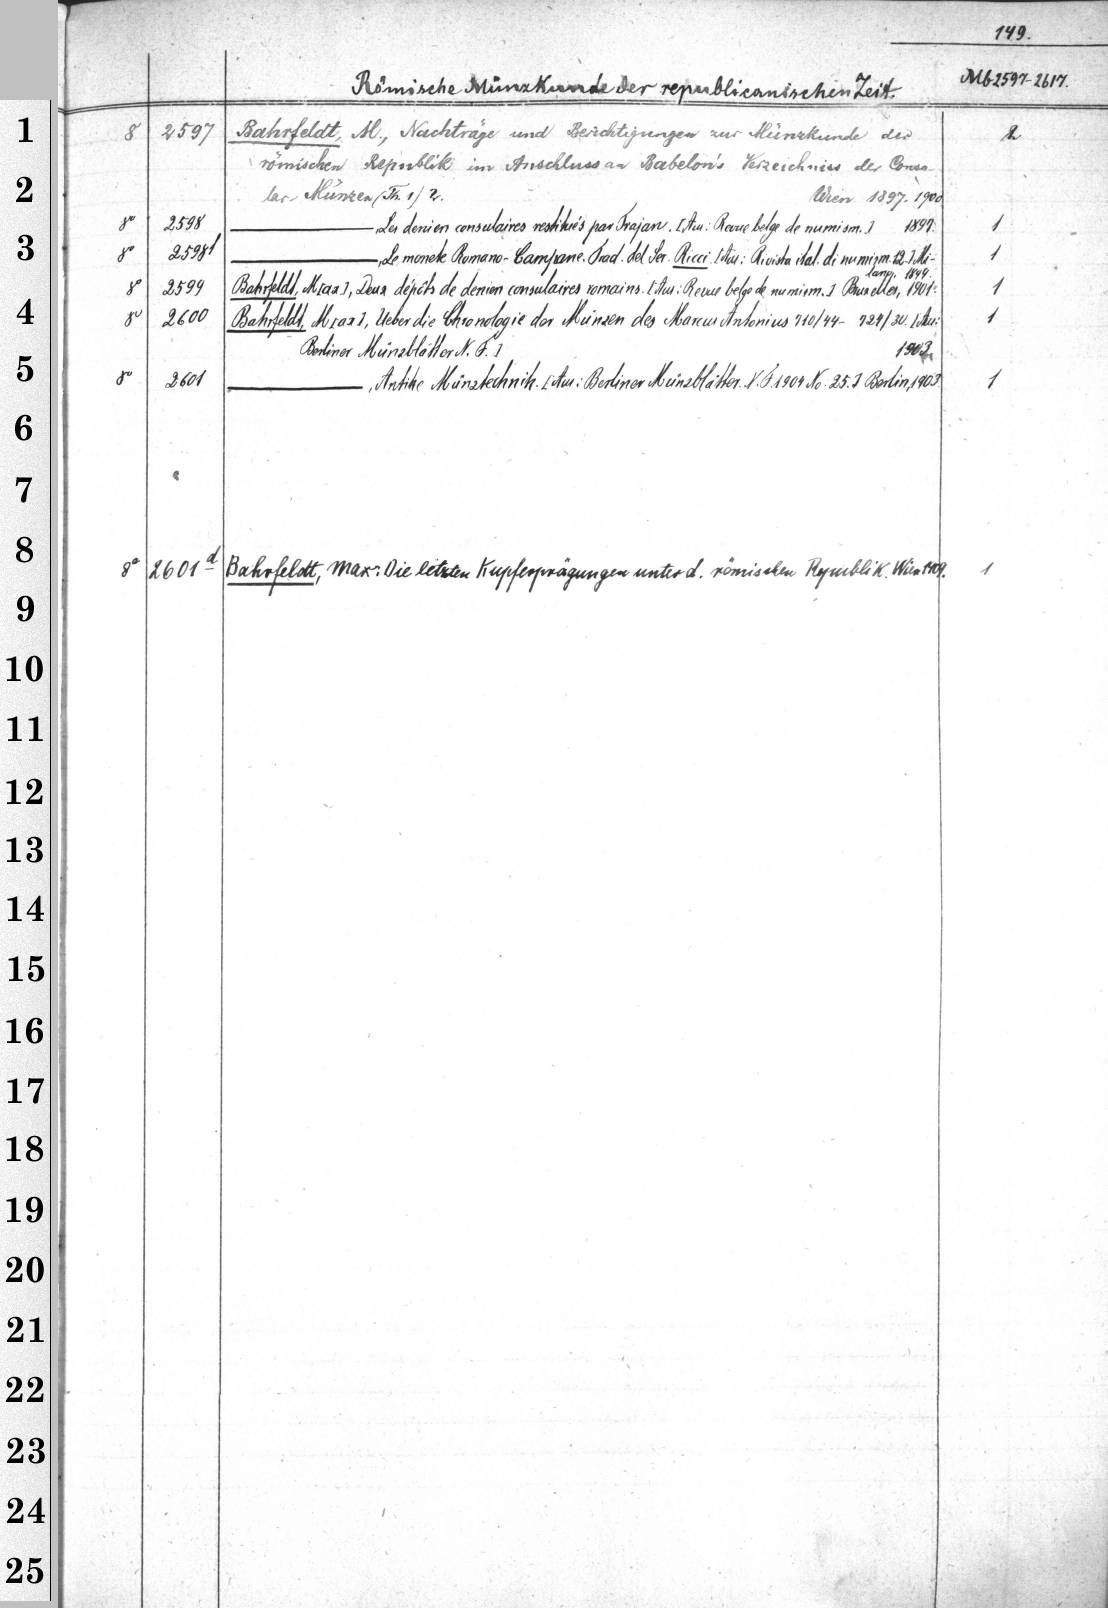 149.
Römische Münzkunde der republicanischen Zeit. Mb 2597-2617.
8 2597 Bahrfeldt, M., Nachträge und Berichtigungen zur Münzkunde der 2
römischen Republik im Anschluss an Babelon's Verzeichniss der Consu-
lar-Münzen (Th. 1) 2. Wien 1897. 1900
8° 2598 , Les denien consulaires restitués par Trajan. [Aus: Revue belge de numism.] 1897. 1
8° 2598f , Le monete Romano-Campane. Trad. del Ser. Ricci. [Aus: Rivista ital. di numism. 12.] Mi- 1
lano, 1899.
8° 2599 Bahrfeldt, M[ax], Deux dépôts de denien consulaires romains. [Aus: Revue belge de numism.] Bruxelles, 1901. 1
8° 2600 Bahrfeldt, M[ax], Ueber die Chronologie der Münzen des Marcus Antonius 710/44- 724/30. [Aus: 1
Berliner Münzblätter N. F.]
8° 2601 , Antike Münztechnik. [Aus: Berliner Münzblätter. N. F. 1904 No. 25.] Berlin, 1903 1
8° 2601d Bahrfeldt, Max: Die letzten Kupferprägungen unter d. römischen Republik. Wien 1909. 1
1
2
3
4
5
6
7
8
9
10
11
12
13
14
15
16
17
18
19
20
21
22
23
24
25